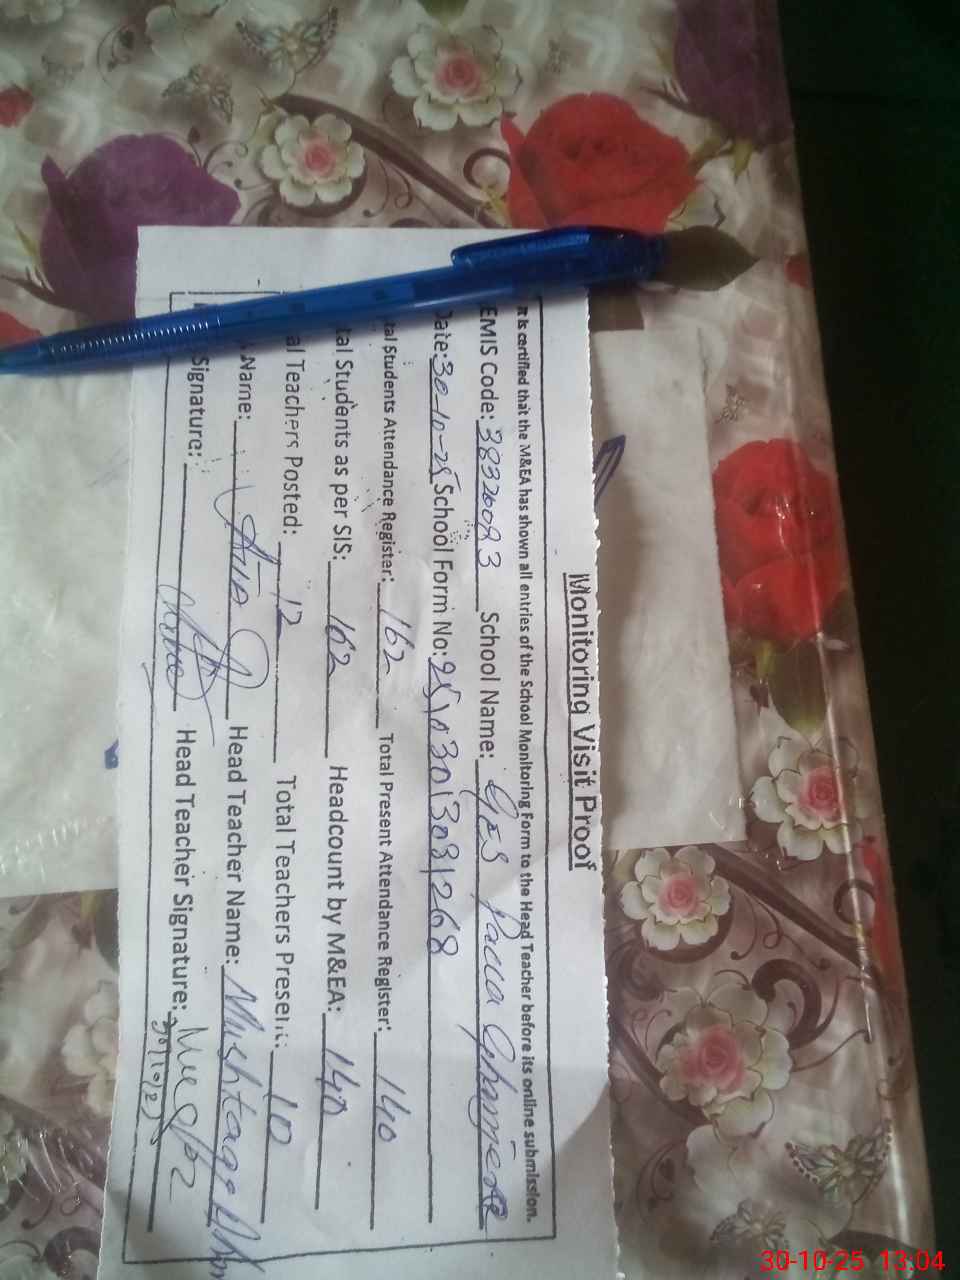 Monitoring Visit Proof
It is certified that the M&EA has shown all entries of the School Monitoring Form to the Head Teacher before its online submission.
EMIS Code: 38326083 School Name: GES Pacca
Date: 30-10-25 School Form No: 25103030831268
tal Students Attendance Register: 162 Total Present Attendance Register: 140
tal Students as per SIS: 162 Headcount by M&EA: 140
al Teachers Posted: 12 Total Teachers Present: 10
Name: Head Teacher Name: Mushtaq
Signature: Head Teacher Signature:
30/10/25
30-10-25 13:04